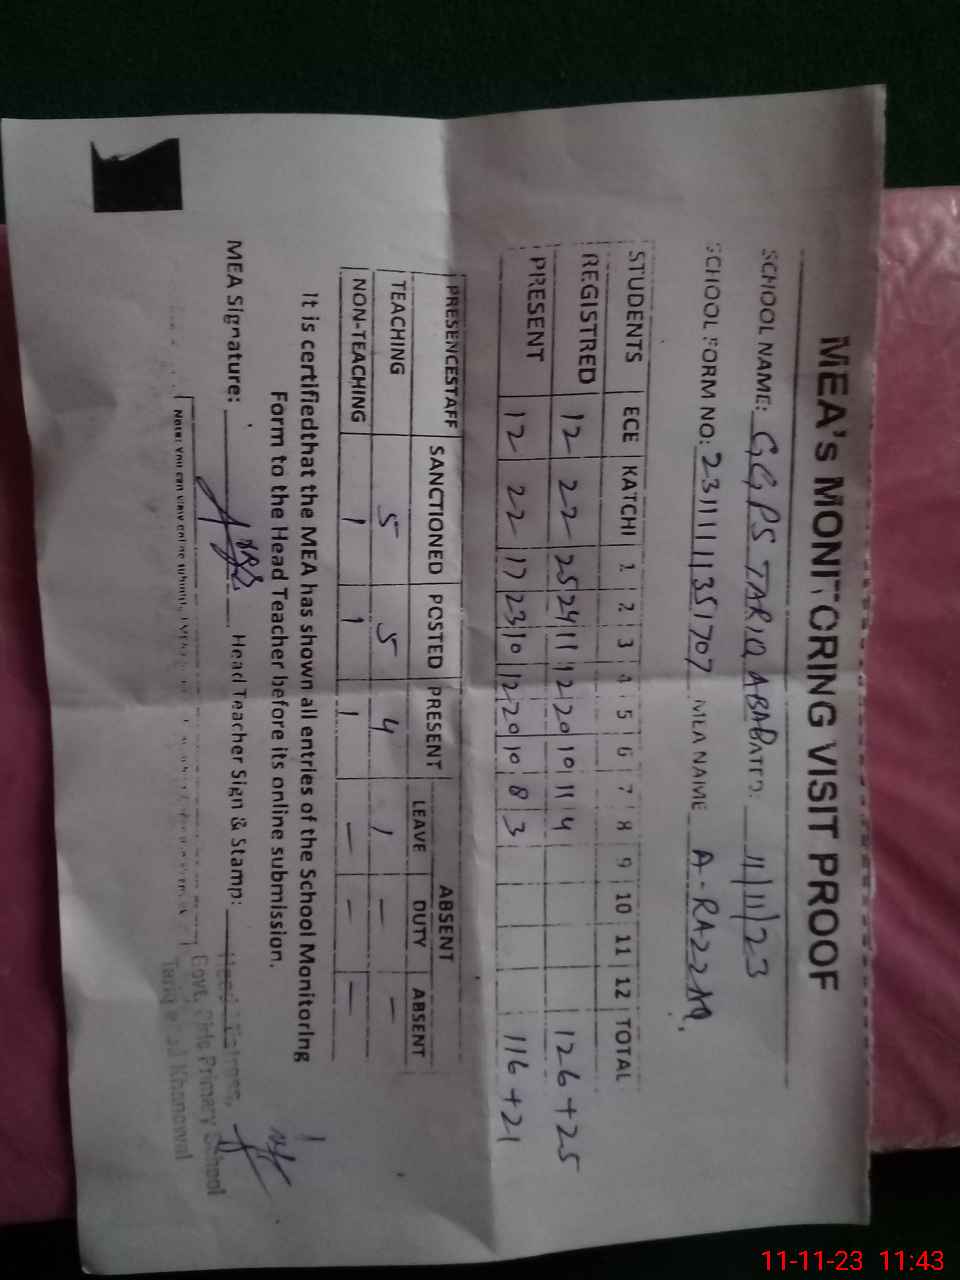 MEA's MONITORING VISIT PROOF
SCHOOL NAME: GGPS TARIQ ABAD DATED: 11/11/23
SCHOOL FORM NO: MEA NAME A-RAZZAQ
STUDENTS ECE KATCHI 1 2 3 4 5 6 7 8 9 10 11 12 TOTAL
REGISTRED 12 22 25 24 11 12 20 10 11 4 126+25
PRESENT 12 22 17 23 10 12 20 10 8 3 116+21
PRESENCESTAFF SANCTIONED POSTED PRESENT ABSENT
LEAVE DUTY ABSENT
TEACHING 5 5 4 1 - -
NON-TEACHING 1 1 1 - - -
It is certifiedthat the MEA has shown all entries of the School Monitoring
Form to the Head Teacher before its online submission.
MEA Signature: Head Teacher Sign & Stamp:
Govt. Girls Primary School
Khanewal
Note: You can view online
11-11-23 11:43